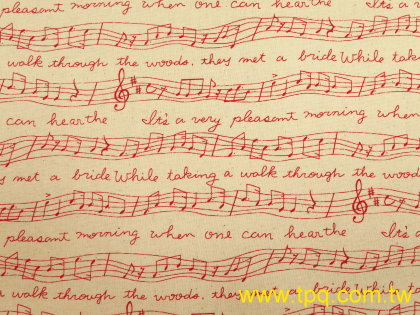 pleasant morning when one can hearthe It's a
walk through the woods. they met a bride While tak
can hearthe It's a very pleasant morning when
y met a bride While taking a walk through the wood
pleasant morning when one can hearthe It's a
a walk through the woods. they
www.tpq.com.tw